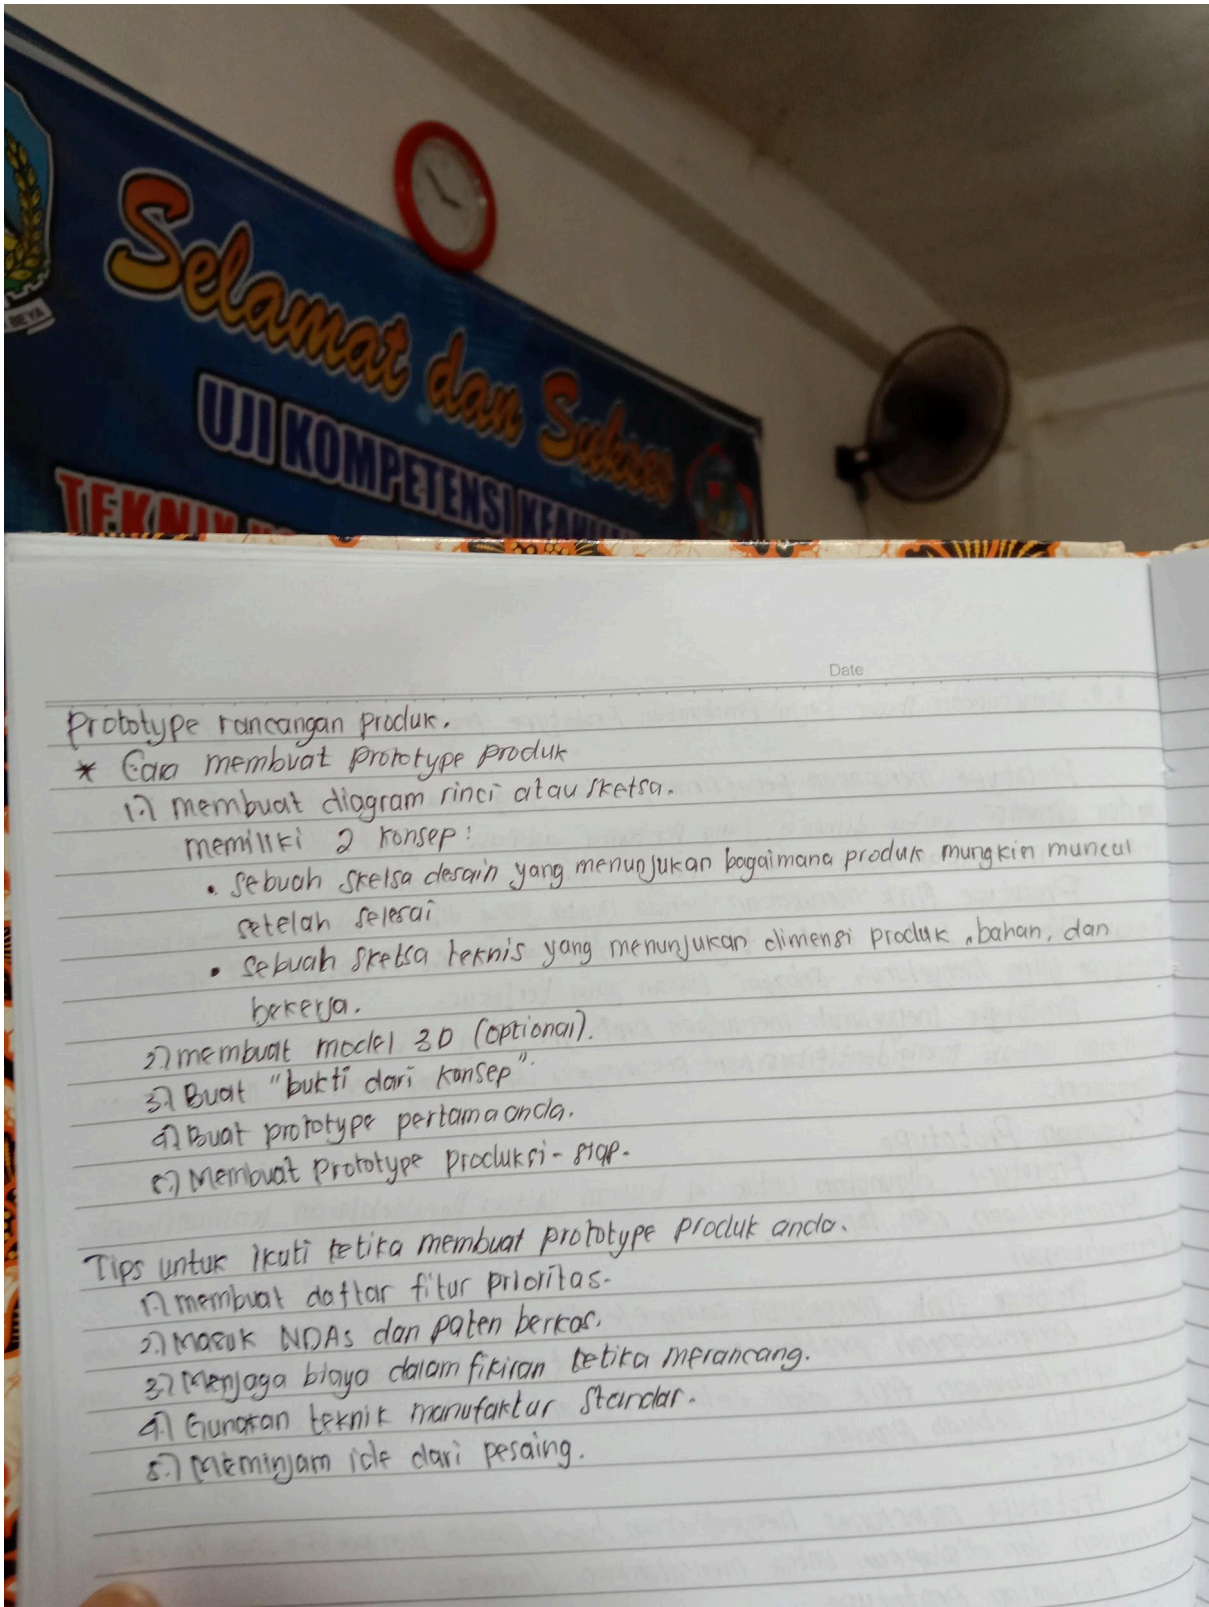 BEYA
Selamat dan Sukses
UJI KOMPETENSI KEAHLIAN
TEKNIK
Date
Prototype rancangan produk.
* Cara membuat prototype produk
1.) membuat diagram rinci atau sketsa.
memiliki 2 konsep:
• sebuah sketsa desain yang menunjukan bagaimana produk mungkin muncul
setelah selesai
• sebuah sketsa teknis yang menunjukan dimensi produk, bahan, dan
bekerja.
2.) membuat model 3D (optional).
3.) Buat "bukti dari konsep".
4.) Buat prototype pertama anda.
5.) Membuat prototype produksi-siap.
Tips untuk ikuti ketika membuat prototype produk anda.
1.) membuat daftar fitur prioritas.
2.) Masuk NDAs dan paten berkas.
3.) Menjaga biaya dalam fikiran ketika merancang.
4.) Gunakan teknik manufaktur standar.
5.) Meminjam ide dari pesaing.